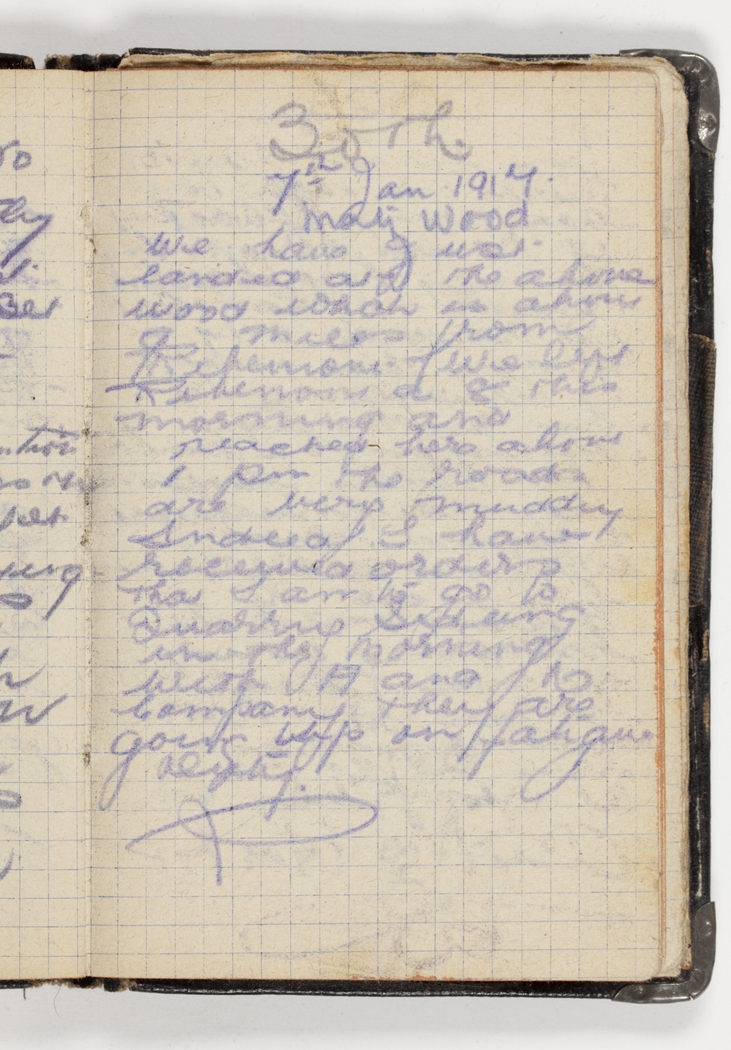 30th.
7th Jan 1917.
Maltz Wood
We have just
landed at the above
wood which is about
miles from
Ribemont (We left
Ribemont at 8 this
morning and
reached here about
1 pm the roads
are very muddy
Indeed I have
received orders
that I am to go to
Quarry Siding
in the morning
with A and
Company they are
going up on fatigue
duty.
ro
ay
Bet
ntion
yet
ying